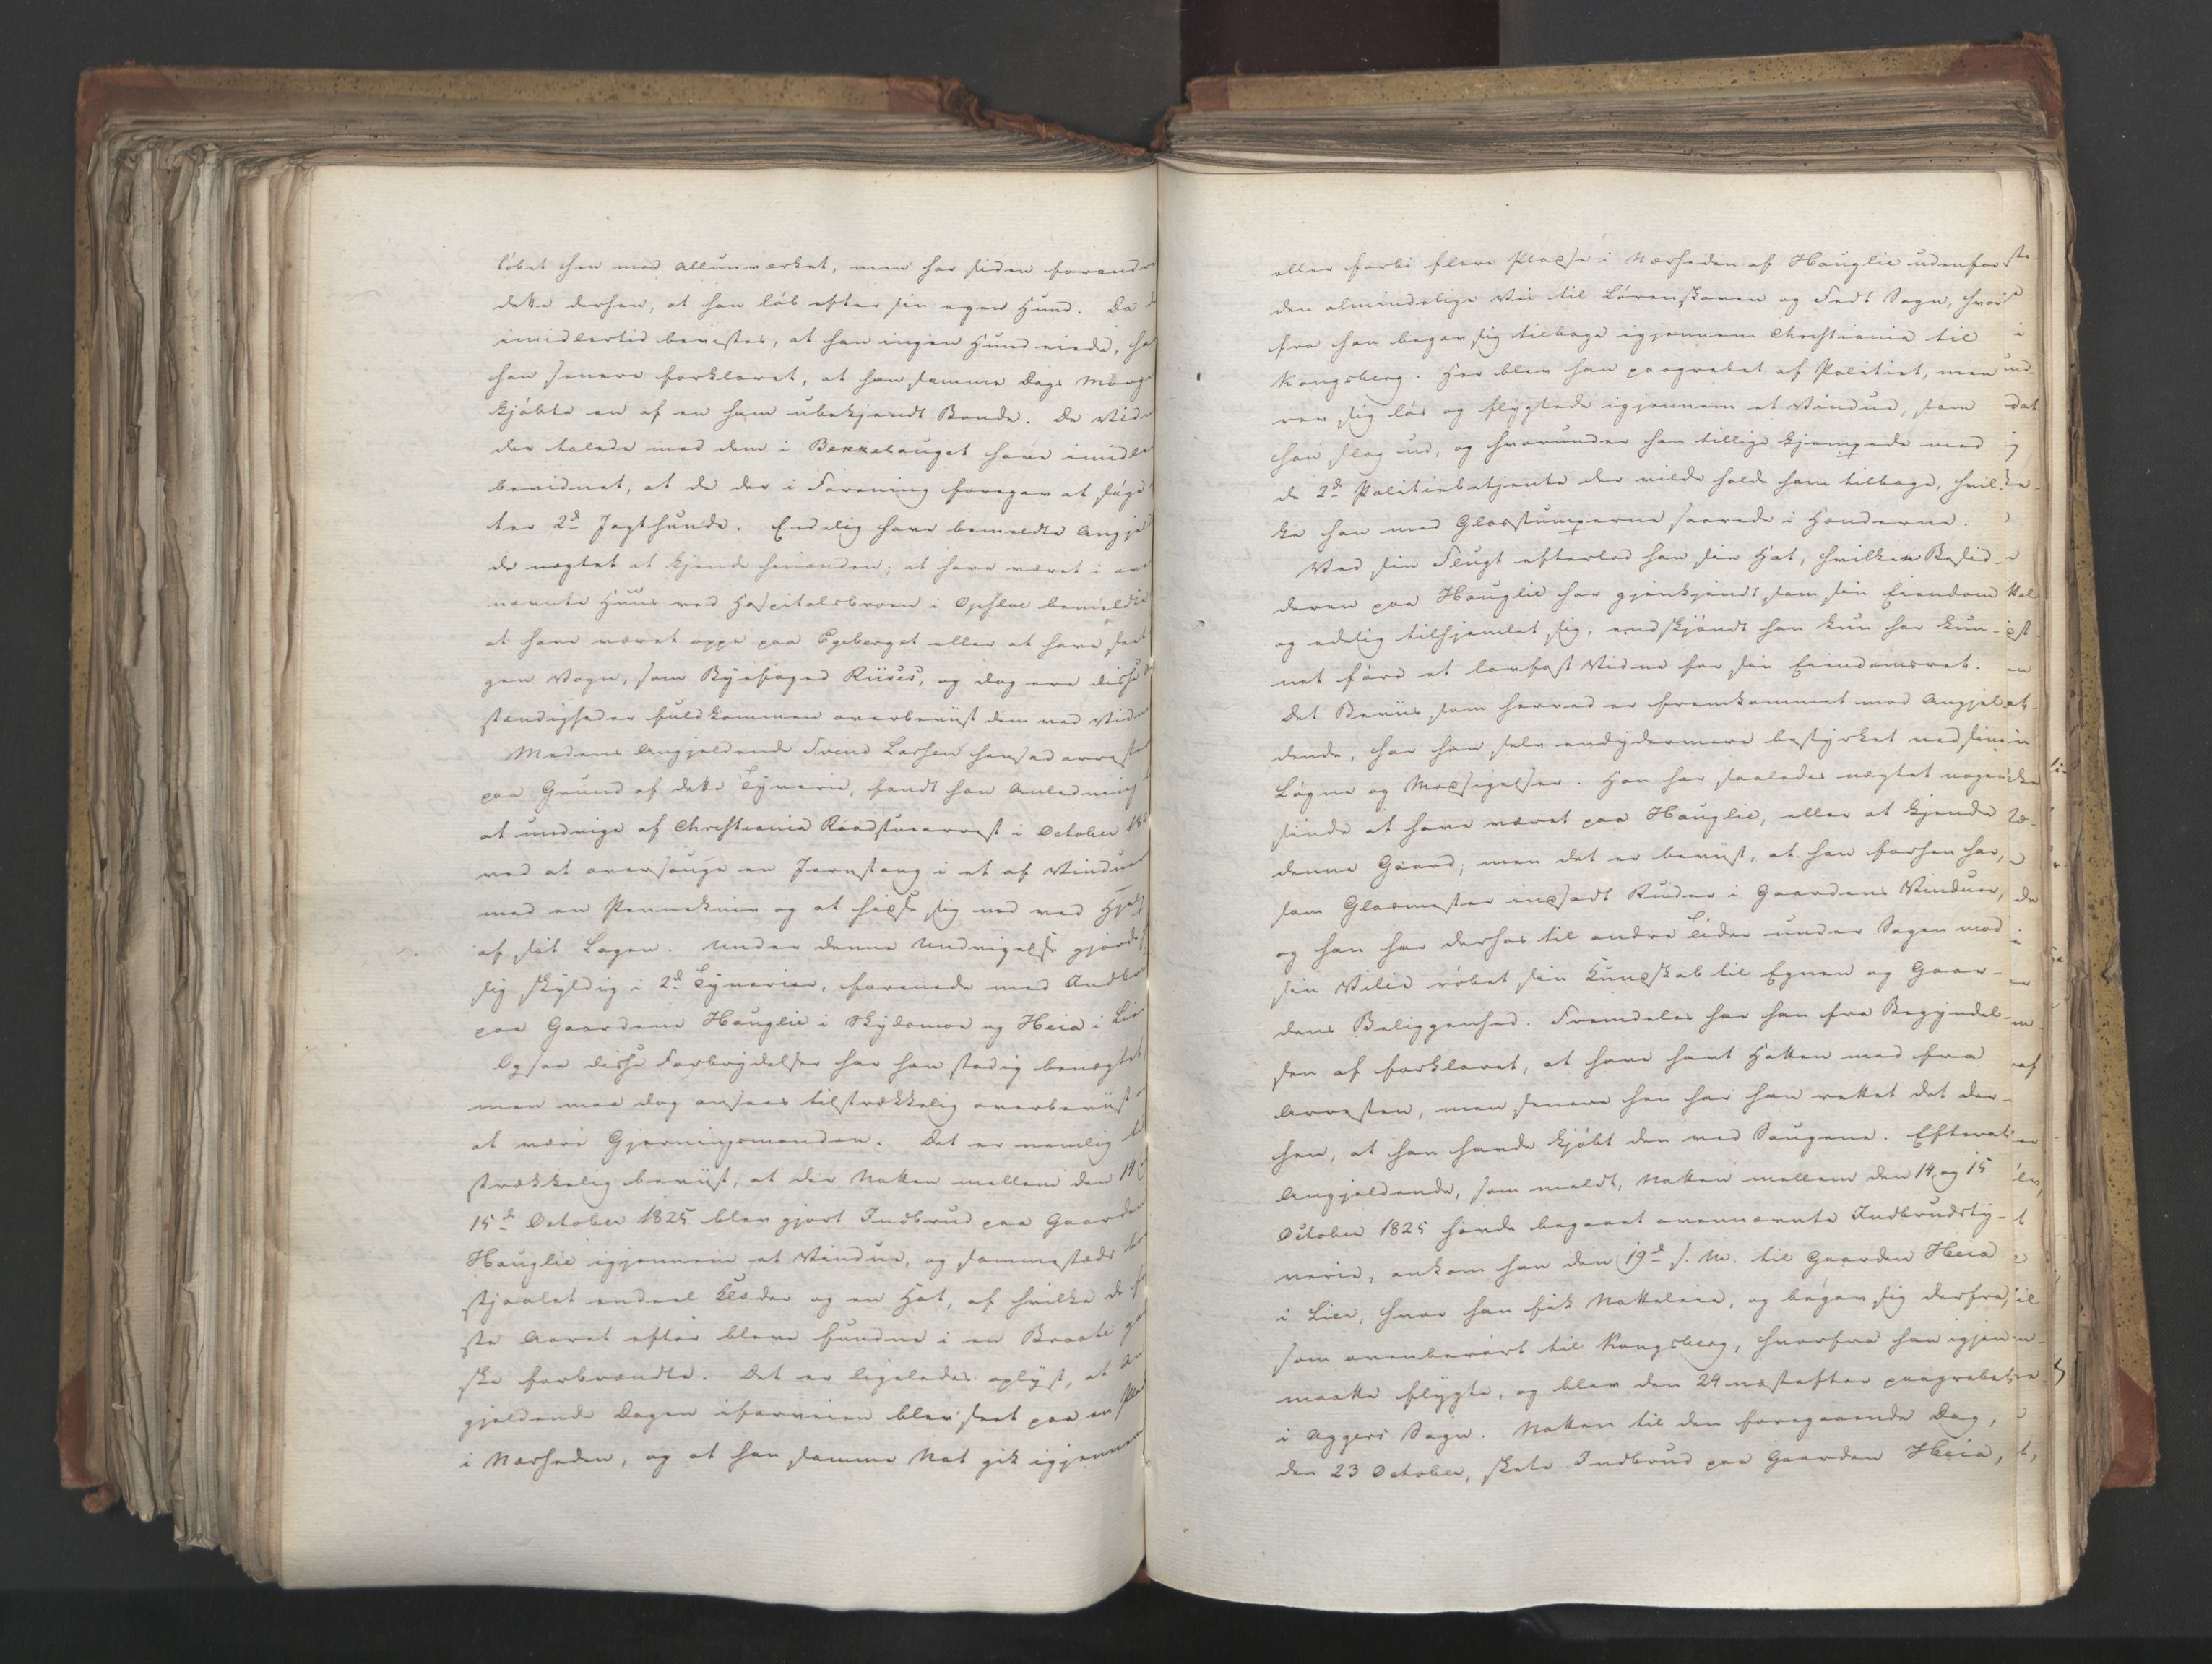 løbet hen mod Allunværket, men har siden forandr
dette derhen, at han løb efter sin egen Hund. Da
imidlertid bevistes, at han ingen Hund eiede, ha
han senere forklaret, at han samme Dags Morge
kjøbte en af en ham ubekjendt Bonde. De Vidn
der talede med dem i Bekkehauget have imidle
bevidnet, at de der i Forening foregav at søge
ter 2de Jagthunde. Endelig have bemeldte Angjel
de nægtet at kjende hinanden; at have været i oven
nævnte Huus ved Hospitalsbroen i Opsloe bemeldte
at have været oppe paa Egeberget eller at have seet
gen Vogn, som Byefoged Riises, og dog ere disse
stændigheder fuldkommen overbeviist dem ved Vidn
Medens Angjeldende Svend Larsen hensad arrest
paa Grund af dette Tyverie, fandt han Anledning
at undvige af Christiania Raadstuearrest i October 182
ved at oversauge en Jernstang i et af Vinduer
med en Pennekniv og at hidse sig ned ved Hjelp
af sit Lagen. Under denne Undvigelse gjorde
sig skyldig i 2de Tyverier, forenede med Indbr
paa Gaardene Hauglie i Skydsmoe og Heia i Lie
Ogsaa disse Forbrydelser har han stadig benægtet
men maa dog ansees tilstrækkelig overbeviist
at være Gjerningsmanden. Det er nemlig til
strækkelig beviist, at der Natten mellem den 14
15de October 1825 blev gjort Indbrud paa Gaarden
Hauglie igjennem et Vindue, og sammesteds
stjaalet endeel Klæder og en Hat, af hvilke de
ste Aaret efter bleve fundne i en Braate
ske forbrændte. Det er ligeledes oplyst, at An
gjeldende Dagen iforveien blev seet paa en
i Nærheden, og at han samme Nat gik igjennem
eller forbi flere Pladse i Nærheden af Hauglie udenfor
den almindelige Vei til Lørenskoven og Fedt Sogn, hvor
fra han begav sig tilbage igjennem Christiania til
Kongsberg. Her blev han paagrebet af Politiet, men
rev sig løs og flygtede igjennem et Vindue, som
han slog ud, og hvorunder han tillige kjempede med
de 2de Politiebetjente der vilde holde ham tilbage, hvil
ke han med Glasstumperne saarede i Hænderne.
Ved sin Flugt efterlod han sin Hat, hvilken Besid-
deren paa Hauglie har gjenkjendt som sin Eiendom
og edelig tilhjemlet sig, endskjøndt han kun har kun-
net føre et lovfast Vidne for sin Eiendomsret.
Det Beviis som herved er fremkommet mod Angjel
dende, har han selv endydermere bestyrket ved sine
Løgne og Modsigelser. Han har saaledes nægtet nogen
sinde at have været paa Hauglie, eller at kjende
denne Gaard; men det er beviist, at han forhen har,
som Glasmester indsadt Ruder i Gaardens Vinduer,
og han har derhos til andre Tider under Sagen mod
sin Vilie røbet sin Kundskab til Egnen og Gaar-
dens Beliggenhed. Fremdeles har han fra Begyndel-
sen af forklaret, at have havt Hatten med fra
Arresten, men senere hen har han rettet det der-
hen, at han havde kjøbt den ved Saugene. Efterat
Angjeldende, som meldt, Natten mellem den 14 og 15
October 1825 havde begaaet ovennævnte Indbrudsty-
verie, ankom han den 19de s. M. til Gaarden Heia
i Lier, hvor han fik Natteleie, og begav sig derfra
som ovenberørt til Kongsberg, hvorfra han igjen
maatte flygte, og blev den 24 næstefter paagrebet
i Aggers Sogn. Natten til den foregaaende Dag,
den 23 October, skete Indbrud paa Gaarden Heia,